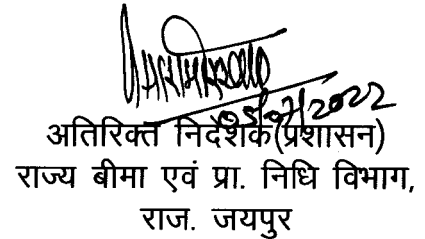 05/07/2022
अतिरिक्त निदेशक(प्रशासन)
राज्य बीमा एवं प्रा. निधि विभाग,
राज. जयपुर